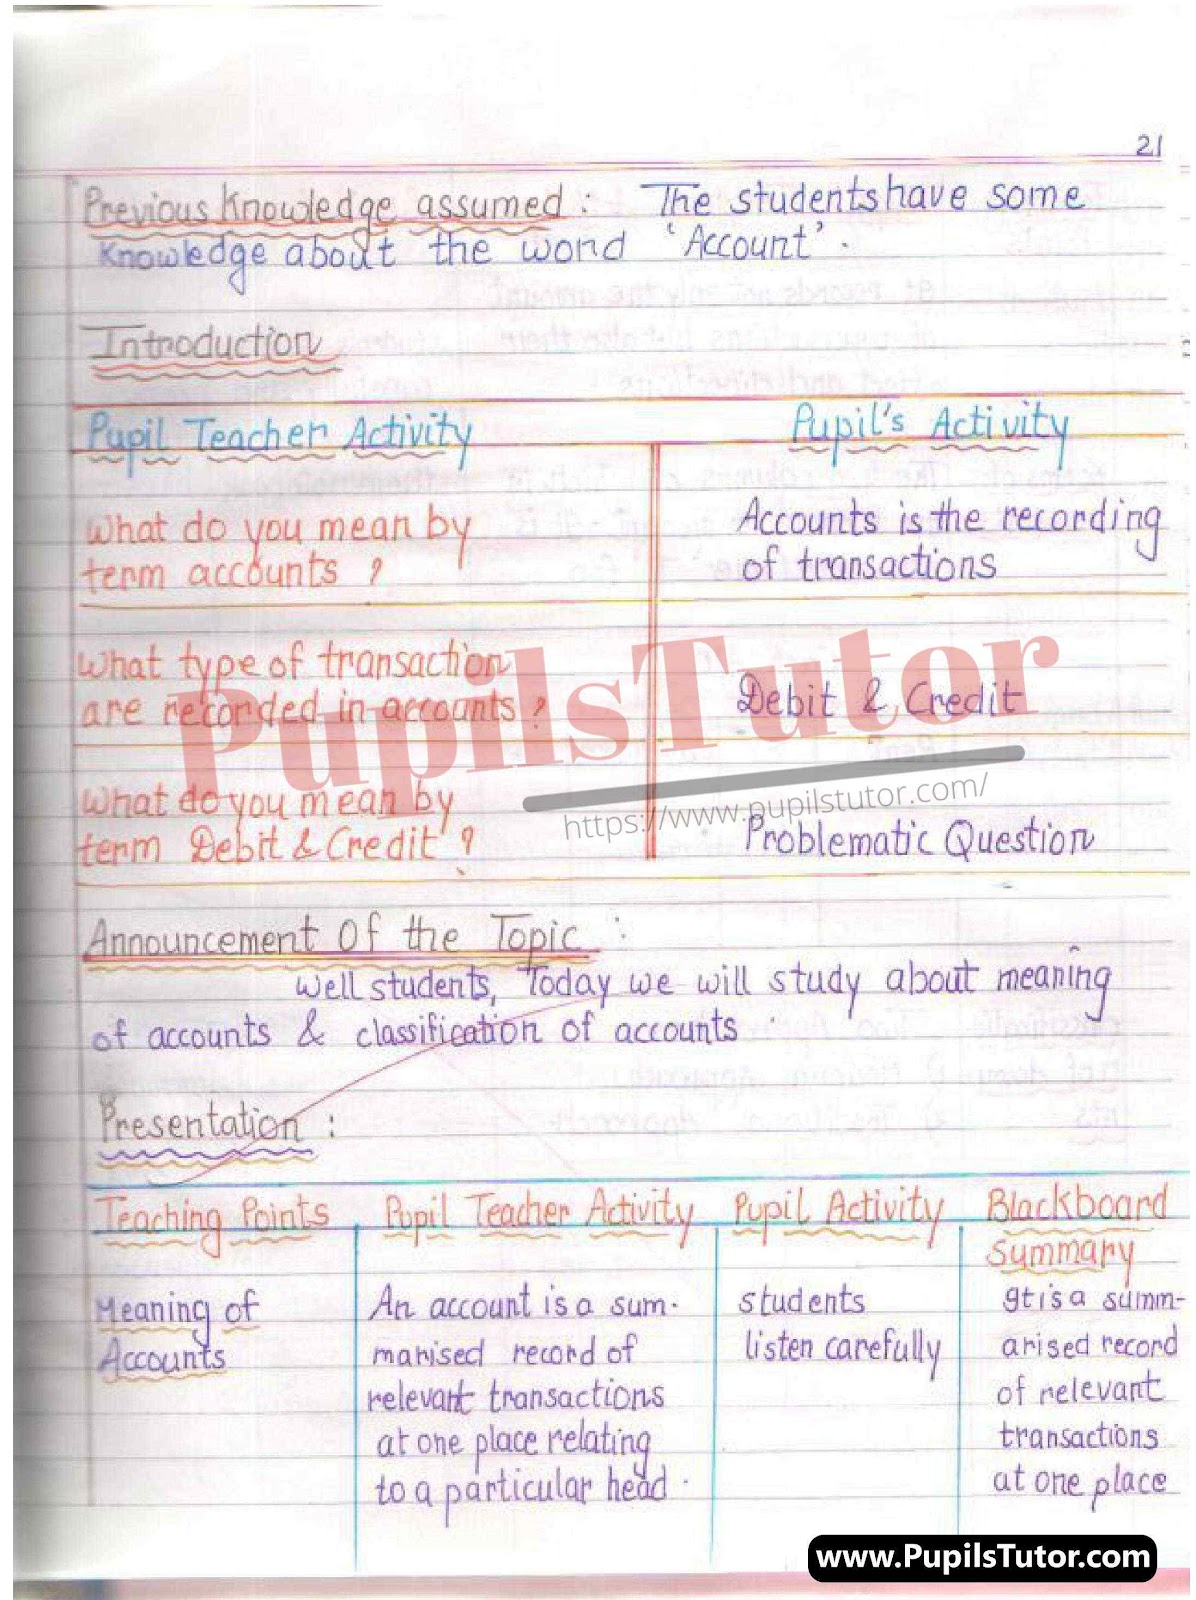 21
Previous Knowledge assumed : The students have some
Knowledge about the word 'Account'.
Introduction
Pupil Teacher Activity Pupil's Activity
What do you mean by
term accounts ?
Accounts is the recording
of transactions
What type of transaction
are recorded in accounts ?
Debit & Credit
What do you mean by
term Debit & Credit ?
Problematic Question
PupilsTutor
https://www.pupilstutor.com/
Announcement Of the Topic :
Well students, Today we will study about meaning
of accounts & classification of accounts .
Presentation :
Teaching Points Pupil Teacher Activity Pupil Activity Blackboard
Summary
Meaning of
Accounts
An account is a sum-
marised record of
relevant transactions
at one place relating
to a particular head .
students
listen carefully
It is a summ-
arised record
of relevant
transactions
at one place
www.PupilsTutor.com